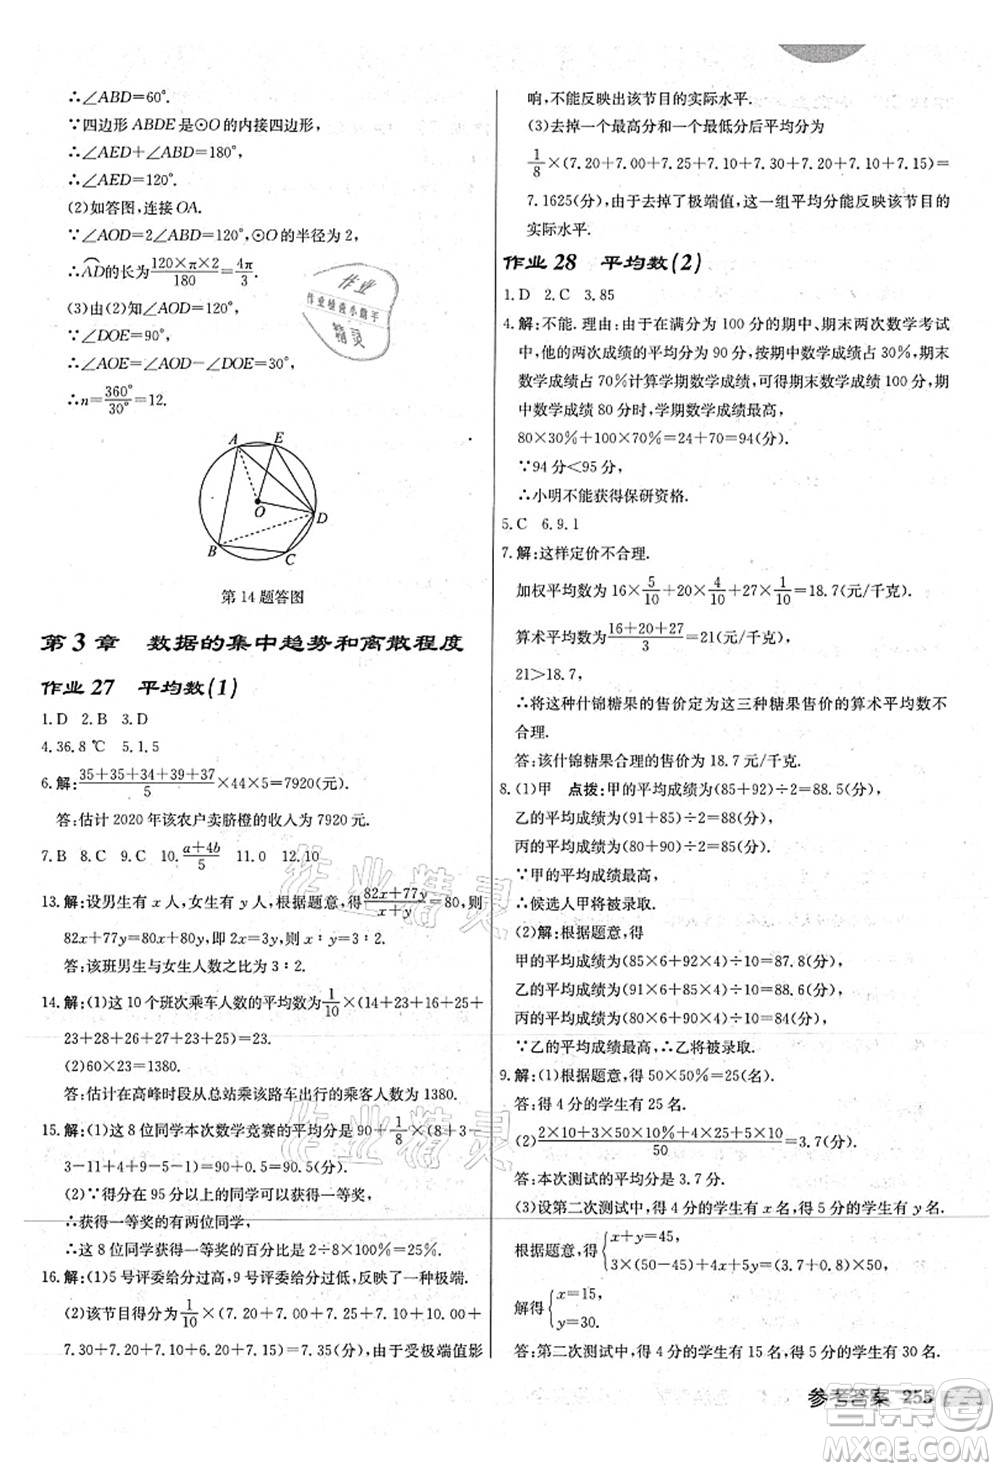 ∴∠ABD=60°.
∵四边形 ABDE 是⊙O 的内接四边形，
∴∠AED+∠ABD=180°，
∴∠AED=120°.
(2)如答图，连接 OA.
∵∠AOD=2∠ABD=120°，⊙O 的半径为 2，
∴AD的长为 120×π×2/180 = 4π/3.
(3)由(2)知∠AOD=120°.
∵∠DOE=90°，
∴∠AOE=∠AOD-∠DOE=30°，
∴n=360°/30°=12.
A E
O
D
B C
第 14 题答图
第 3 章 数据的集中趋势和离散程度
作业 27 平均数(1)
1.D 2.B 3.D
4.36.8 ℃ 5.1.5
6.解:(35+35+34+39+37)/5×44×5=7920(元).
答:估计 2020 年该农户卖脐橙的收入为 7920 元.
7.B 8.C 9.C 10.(a+4b)/5 11.0 12.10
13.解:设男生有 x 人，女生有 y 人，根据题意，得(82x+77y)/(x+y)=80，则
82x+77y=80x+80y，即 2x=3y，则 x∶y=3∶2.
答:该班男生与女生人数之比为 3∶2.
14.解:(1)这 10 个班次乘车人数的平均数为1/10×(14+23+16+25+
23+28+26+27+23+25)=23.
(2)60×23=1380.
答:估计在高峰时段从总站乘该路车出行的乘客人数为 1380.
15.解:(1)这 8 位同学本次数学竞赛的平均分是 90+1/8×(8+3-
3-11+4+9-5-1)=90.5(分).
(2)∵得分在 95 分以上的同学可以获得一等奖，
∴获得一等奖的有两位同学，
∴这 8 位同学获得一等奖的百分比是 2÷8×100%=25%.
16.解:(1)5 号评委给分过高，9 号评委给分过低，反映了一种极端.
(2)该节目得分为1/10×(7.20+7.00+7.25+7.10+10.00+
7.30+7.20+7.10+5.10+7.15)=7.24(分)，由于受极端值影
响，不能反映出该节目的实际水平.
(3)去掉一个最高分和一个最低分后平均分为
1/8×(7.20+7.00+7.25+7.10+7.30+7.20+7.10+7.15)=
7.1625(分)，由于去掉了极端值，这一组平均分能反映该节目的
实际水平.
作业 28 平均数(2)
1.D 2.C 3.85
4.解:不能. 理由:由于在满分为 100 分的期中、期末两次数学考试
中，他的两次成绩的平均分为 90 分，按期中数学成绩占 30%，期末
数学成绩占 70%计算学期数学成绩，可得期末数学成绩 100 分，期
中数学成绩 80 分时，学期数学成绩最高，
80×30%+100×70%=24+70=94(分).
∵94 分<95 分，
∴小明不能获得保研资格.
5.C 6.9.1
7.解:这样定价不合理.
加权平均数为 16×5/10+20×4/10+27×1/10=18.7(元/千克).
算术平均数为(16+20+27)/3=21(元/千克).
21>18.7.
∴将这种什锦糖果的售价定为这三种糖果售价的算术平均数不
合理.
答:该什锦糖果合理的售价为 18.7 元/千克.
8.(1)甲 点拨:甲的平均成绩为(85+92)÷2=88.5(分)，
乙的平均成绩为(91+85)÷2=88(分)，
丙的平均成绩为(80+90)÷2=85(分)，
∵甲的平均成绩最高，
∴候选人甲将被录取.
(2)解:根据题意，得
甲的平均成绩为(85×6+92×4)÷10=87.8(分)，
乙的平均成绩为(91×6+85×4)÷10=88.6(分)，
丙的平均成绩为(80×6+90×4)÷10=84(分).
∵乙的平均成绩最高，∴乙将被录取.
9.解:(1)根据题意，得 50×50%=25(名).
答:得 4 分的学生有 25 名.
(2)(2×10+3×50×10%+4×25+5×10)/50=3.7(分).
答:本次测试的平均分是 3.7 分.
(3)设第二次测试中，得 4 分的学生有 x 名，得 5 分的学生有 y 名，
根据题意，得{x+y=45，
3×5+4x+5y=(3.7+0.8)×50，
解得{x=15，
y=30.
答:第二次测试中，得 4 分的学生有 15 名，得 5 分的学生有 30 名.
参考答案 255
作业
精灵
作业精灵
作业精灵
答案圈
MXQE.COM